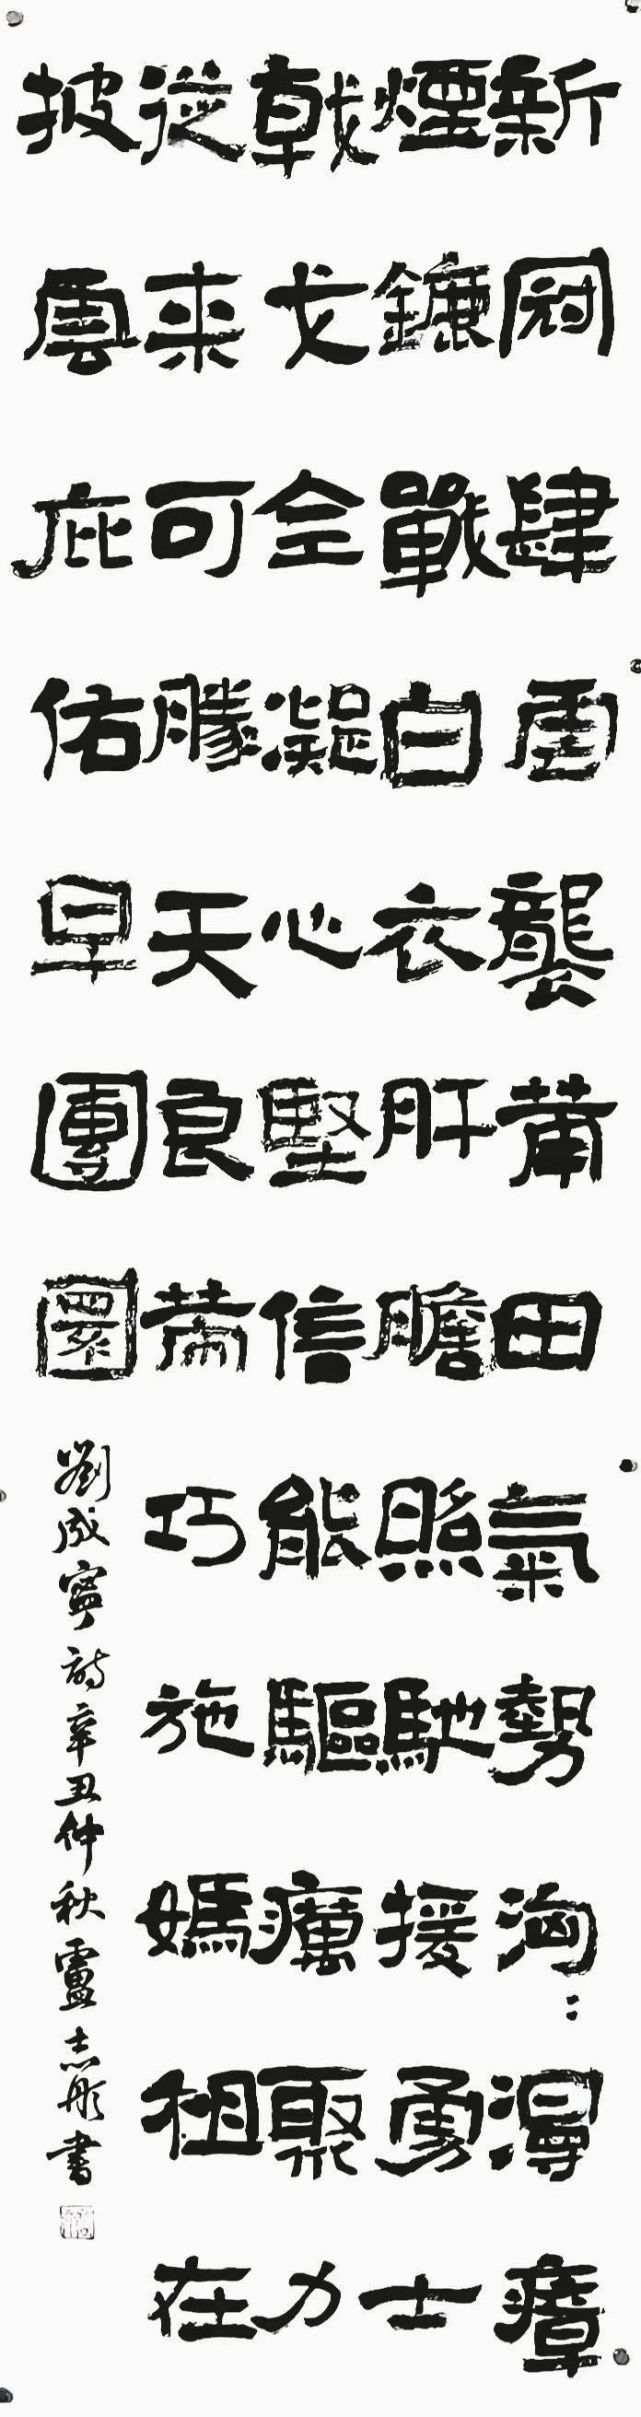 新冠肆虐襲莆田氣勢洶〻漫瘴
煙鏕戰白衣肝膽照馳援勇士
乾戈全凝心堅信能驅癘聚力
從來可勝天良藥巧施媽祖在
披雲庇佑早團圜
劉成寧詩辛丑仲秋盧志彤書